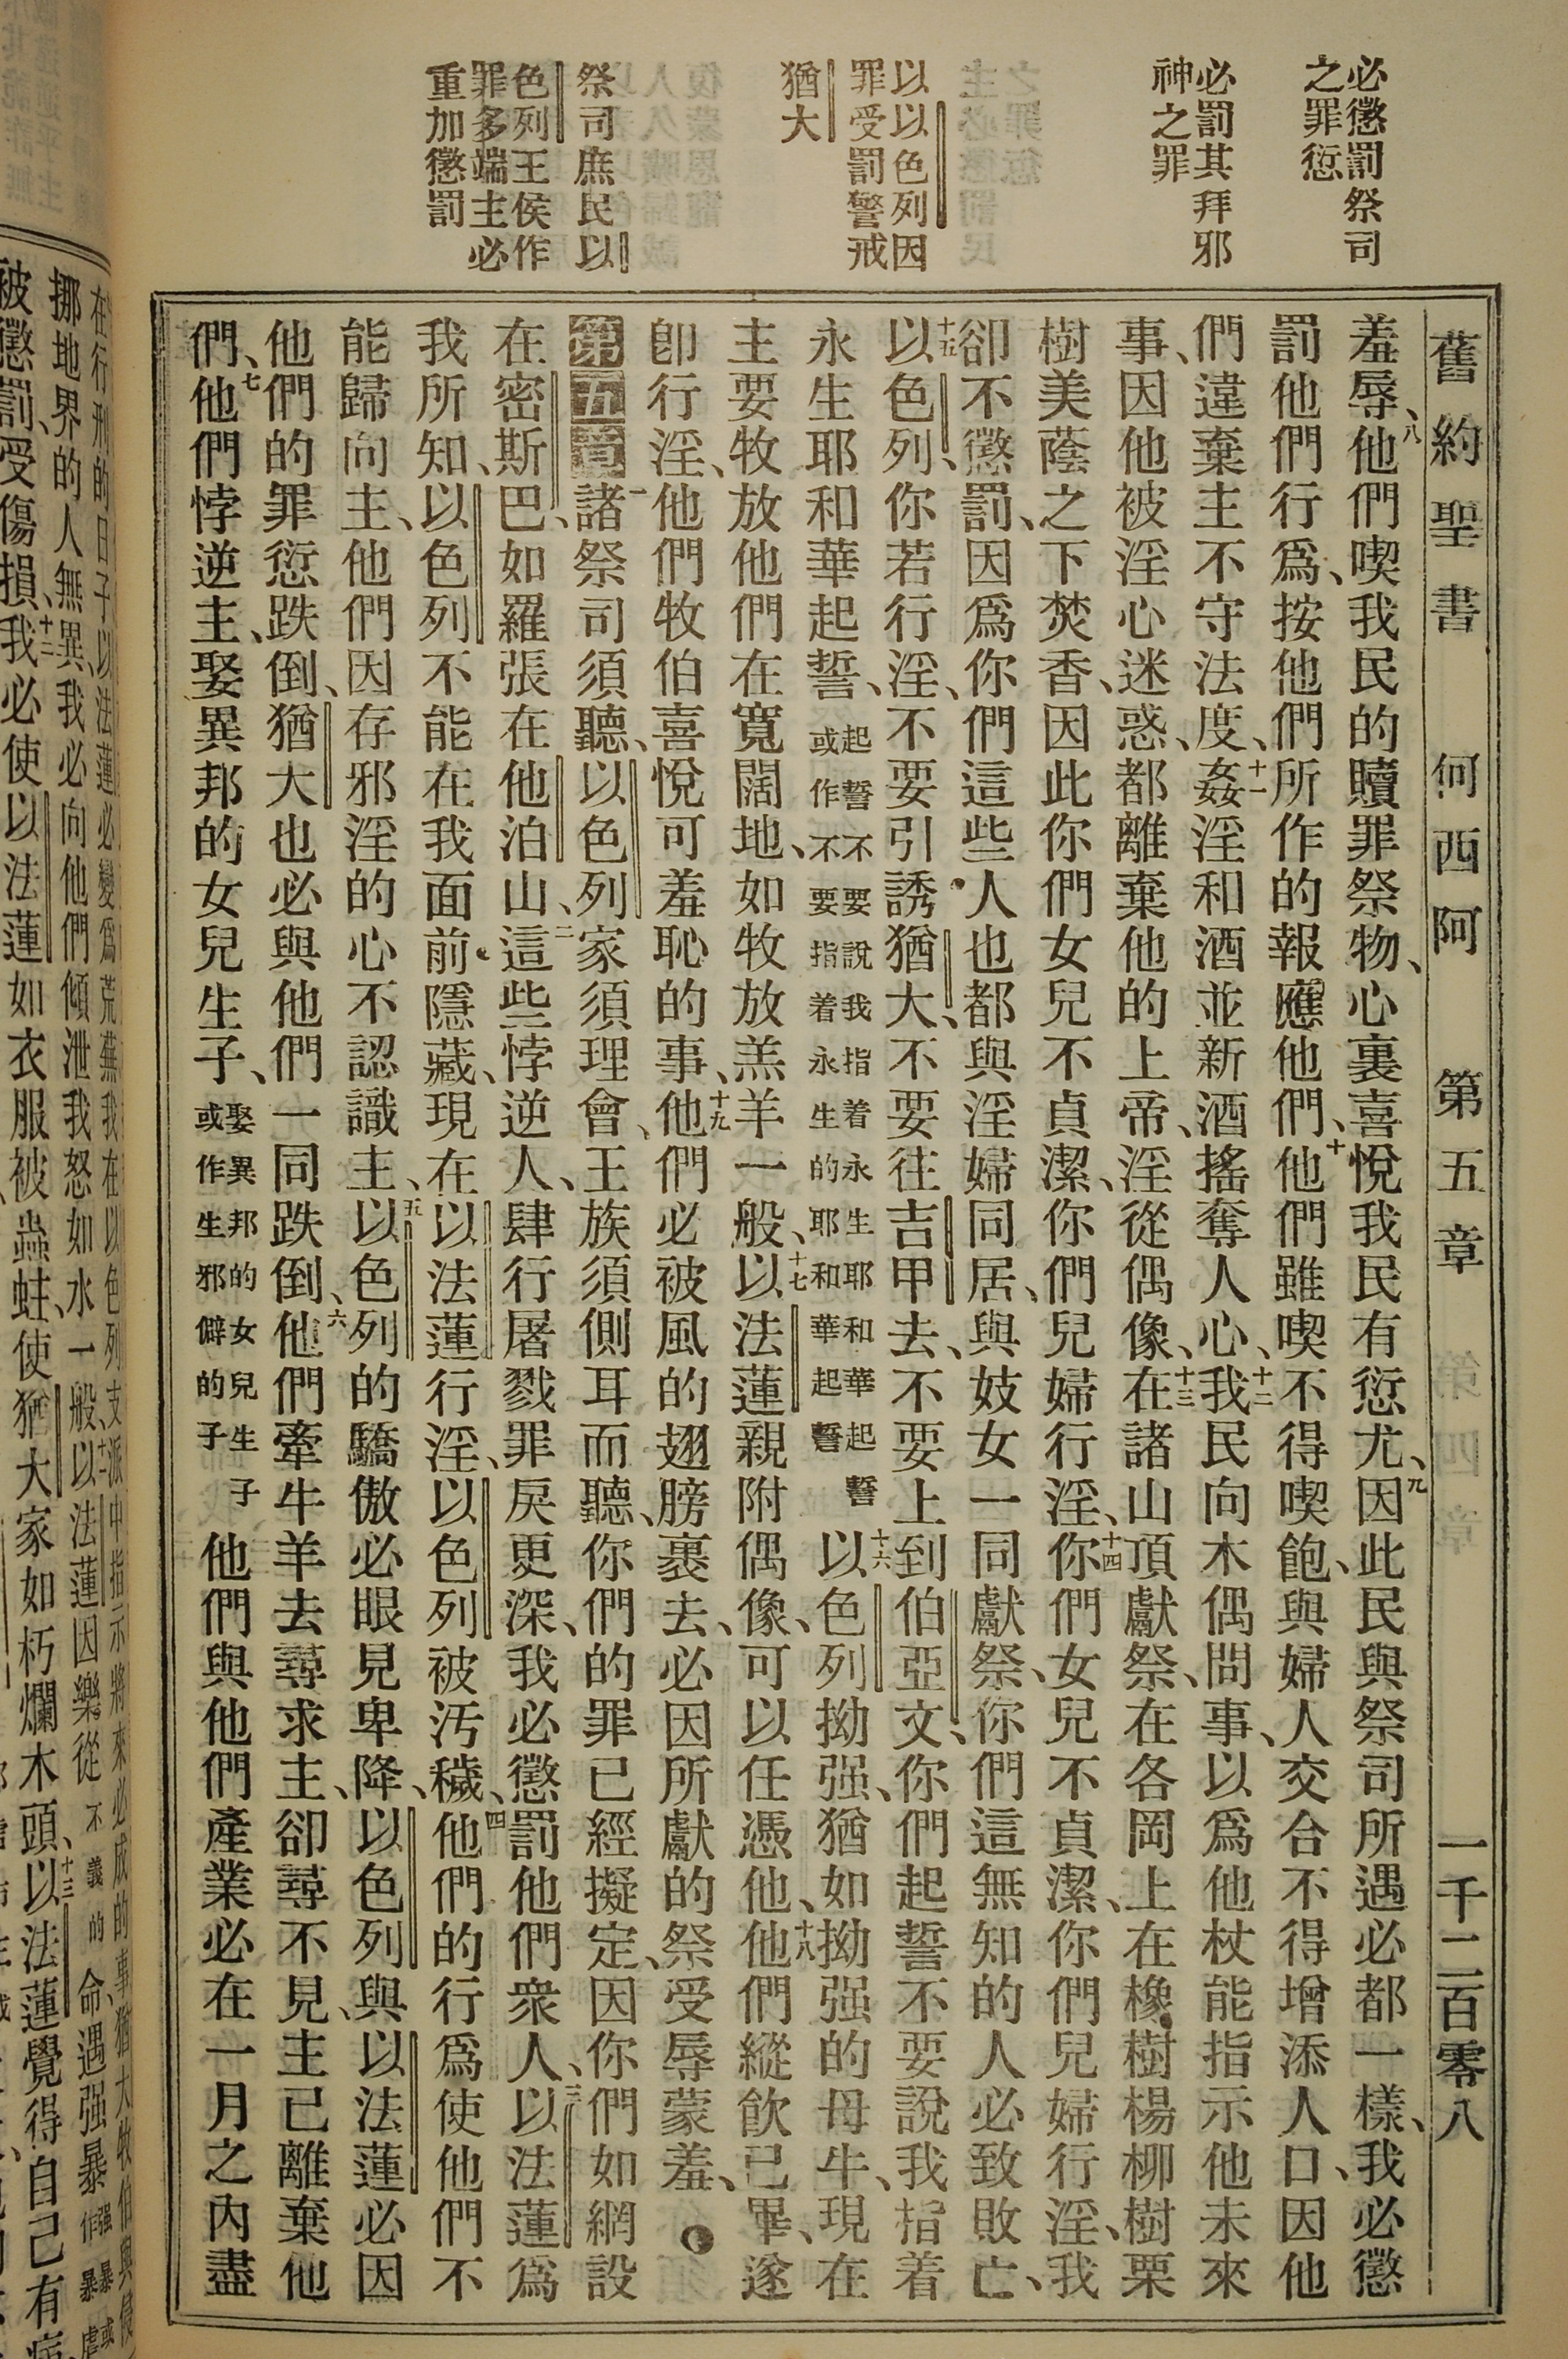 必懲罰祭司
之罪愆
必罰其拜邪
神之罪
以以色列因
罪受罰警戒
猶大
祭司庶民以
色列王侯作
罪多端主必
重加懲罰
舊約聖書 何西阿 第五章 一千二百零八
羞辱、八他們喫我民的贖罪祭物、心裏喜悅我民有愆尤、九因此民與祭司所遇必都一樣、我必懲
罰他們行爲、按他們所作的報應他們、十他們雖喫不得喫飽、與婦人交合不得增添人口、因他
們違棄主不守法度、十一姦淫和酒並新酒搖奪人心、十二我民向木偶問事、以爲他杖能指示他未來
事、因他被淫心迷惑、都離棄他的上帝、淫從偶像、十三在諸山頂獻祭、在各岡上在橡樹楊柳樹栗
樹美蔭之下焚香、因此你們女兒不貞潔、你們兒婦行淫、十四你們女兒不貞潔、你們兒婦行淫、我
卻不懲罰、因爲你們這些人也都與淫婦同居、與妓女一同獻祭、你們這無知的人必致敗亡、
十五以色列、你若行淫、不要引誘猶大、不要往吉甲去、不要上到伯亞文、你們起誓不要說我指着
永生耶和華起誓、起誓不要說我指着永生耶和華起誓或作不要指着永生的耶和華起誓十六以色列拗强、猶如拗强的母牛、現在
主要牧放他們在寬闊地、如牧放羔羊一般、十七以法蓮親附偶像、可以任憑他、十八他們縱飲已畢、遂
卽行淫、他們牧伯喜悅可羞恥的事、十九他們必被風的翅膀裹去、必因所獻的祭受辱蒙羞、
第五章一諸祭司須聽、以色列家須理會、王族須側耳而聽、你們的罪已經擬定、因你們如網設
在密斯巴、如羅張在他泊山、二這些悖逆人、肆行屠戮罪戾更深、我必懲罰他們衆人、三以法蓮爲
我所知、以色列不能在我面前隱藏、現在以法蓮行淫、以色列被汚穢、四他們的行爲使他們不
能歸向主、他們因存邪淫的心不認識主、五以色列的驕傲必眼見卑降、以色列與以法蓮必因
他們的罪愆跌倒、猶大也必與他們一同跌倒、六他們牽牛羊去尋求主、卻尋不見、主已離棄他
們、七他們悖逆主、娶異邦的女兒生子、娶異邦的女兒生子或作生邪僻的子他們與他們產業必在一月之內盡
在行刑的日子、以法蓮必變爲荒蕪我在以色列支派中指示將來必成的事、猶大牧伯與侵
挪地界的人無異、我必向他們傾泄我怒如水一般、十一以法蓮因樂從不義的命遇强暴
被懲罰、受傷損、十二我必使以法蓮如衣服被蟲蛀、使猶大家如朽爛木頭、十三以法蓮覺得自己有病